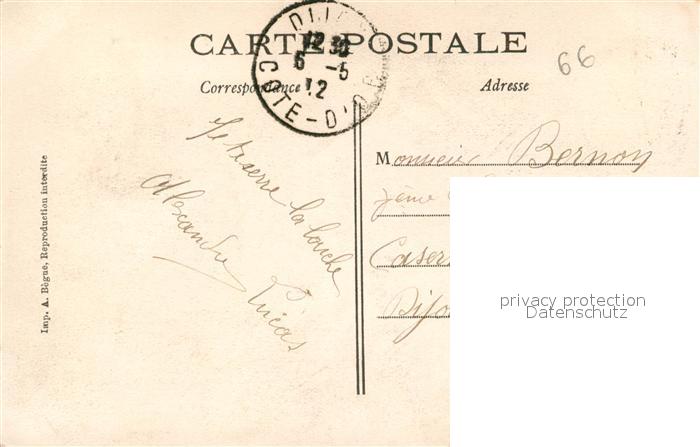 CARTE POSTALE
Correspondance
Adresse
66
12 30
6 -5
12
COTE-D'OR
Je te serre la louche
Alexandre Lucas
Monsieur Bernon
7ème
Caser
Dijon
Imp. A. Bègue, Reproduction interdite
privacy protection
Datenschutz